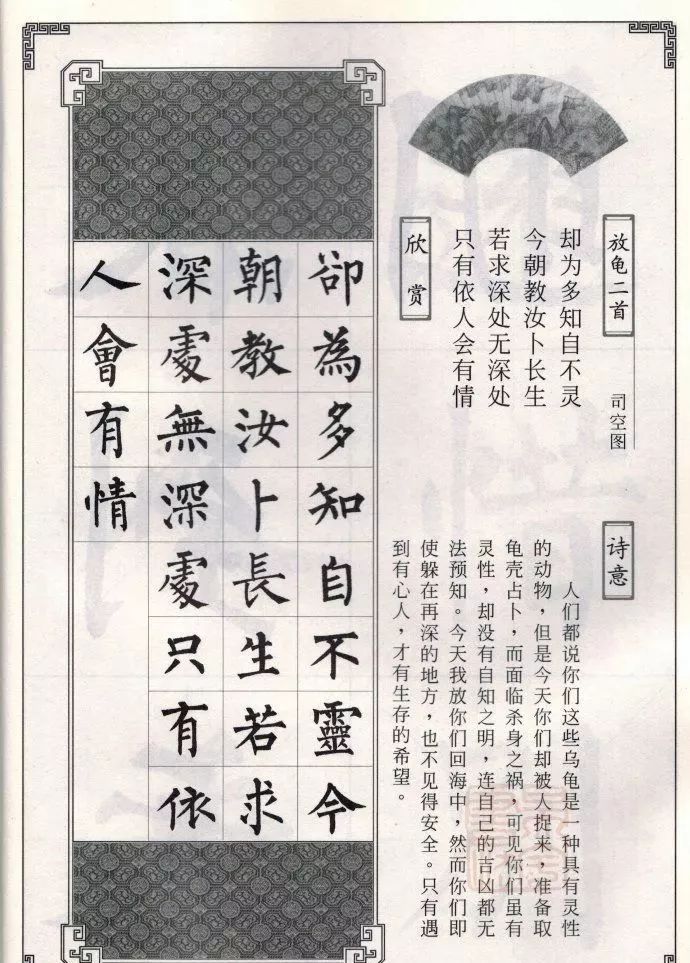 放龟二首
司空图
却为多知自不灵
今朝教汝卜长生
若求深处无深处
只有依人会有情
欣赏
诗意
人们都说你们这些乌龟是一种具有灵性
的动物，但是今天你们却被人捉来，准备取
龟壳占卜，而面临杀身之祸，可见你们虽有
灵性，却没有自知之明，连自己的吉凶都无
法预知。今天我放你们回海中，然而你们即
使躲在再深的地方，也不见得安全。只有遇
到有心人，才有生存的希望。
卻為多知自不靈今
朝教汝卜長生若求
深處無深處只有依
人會有情